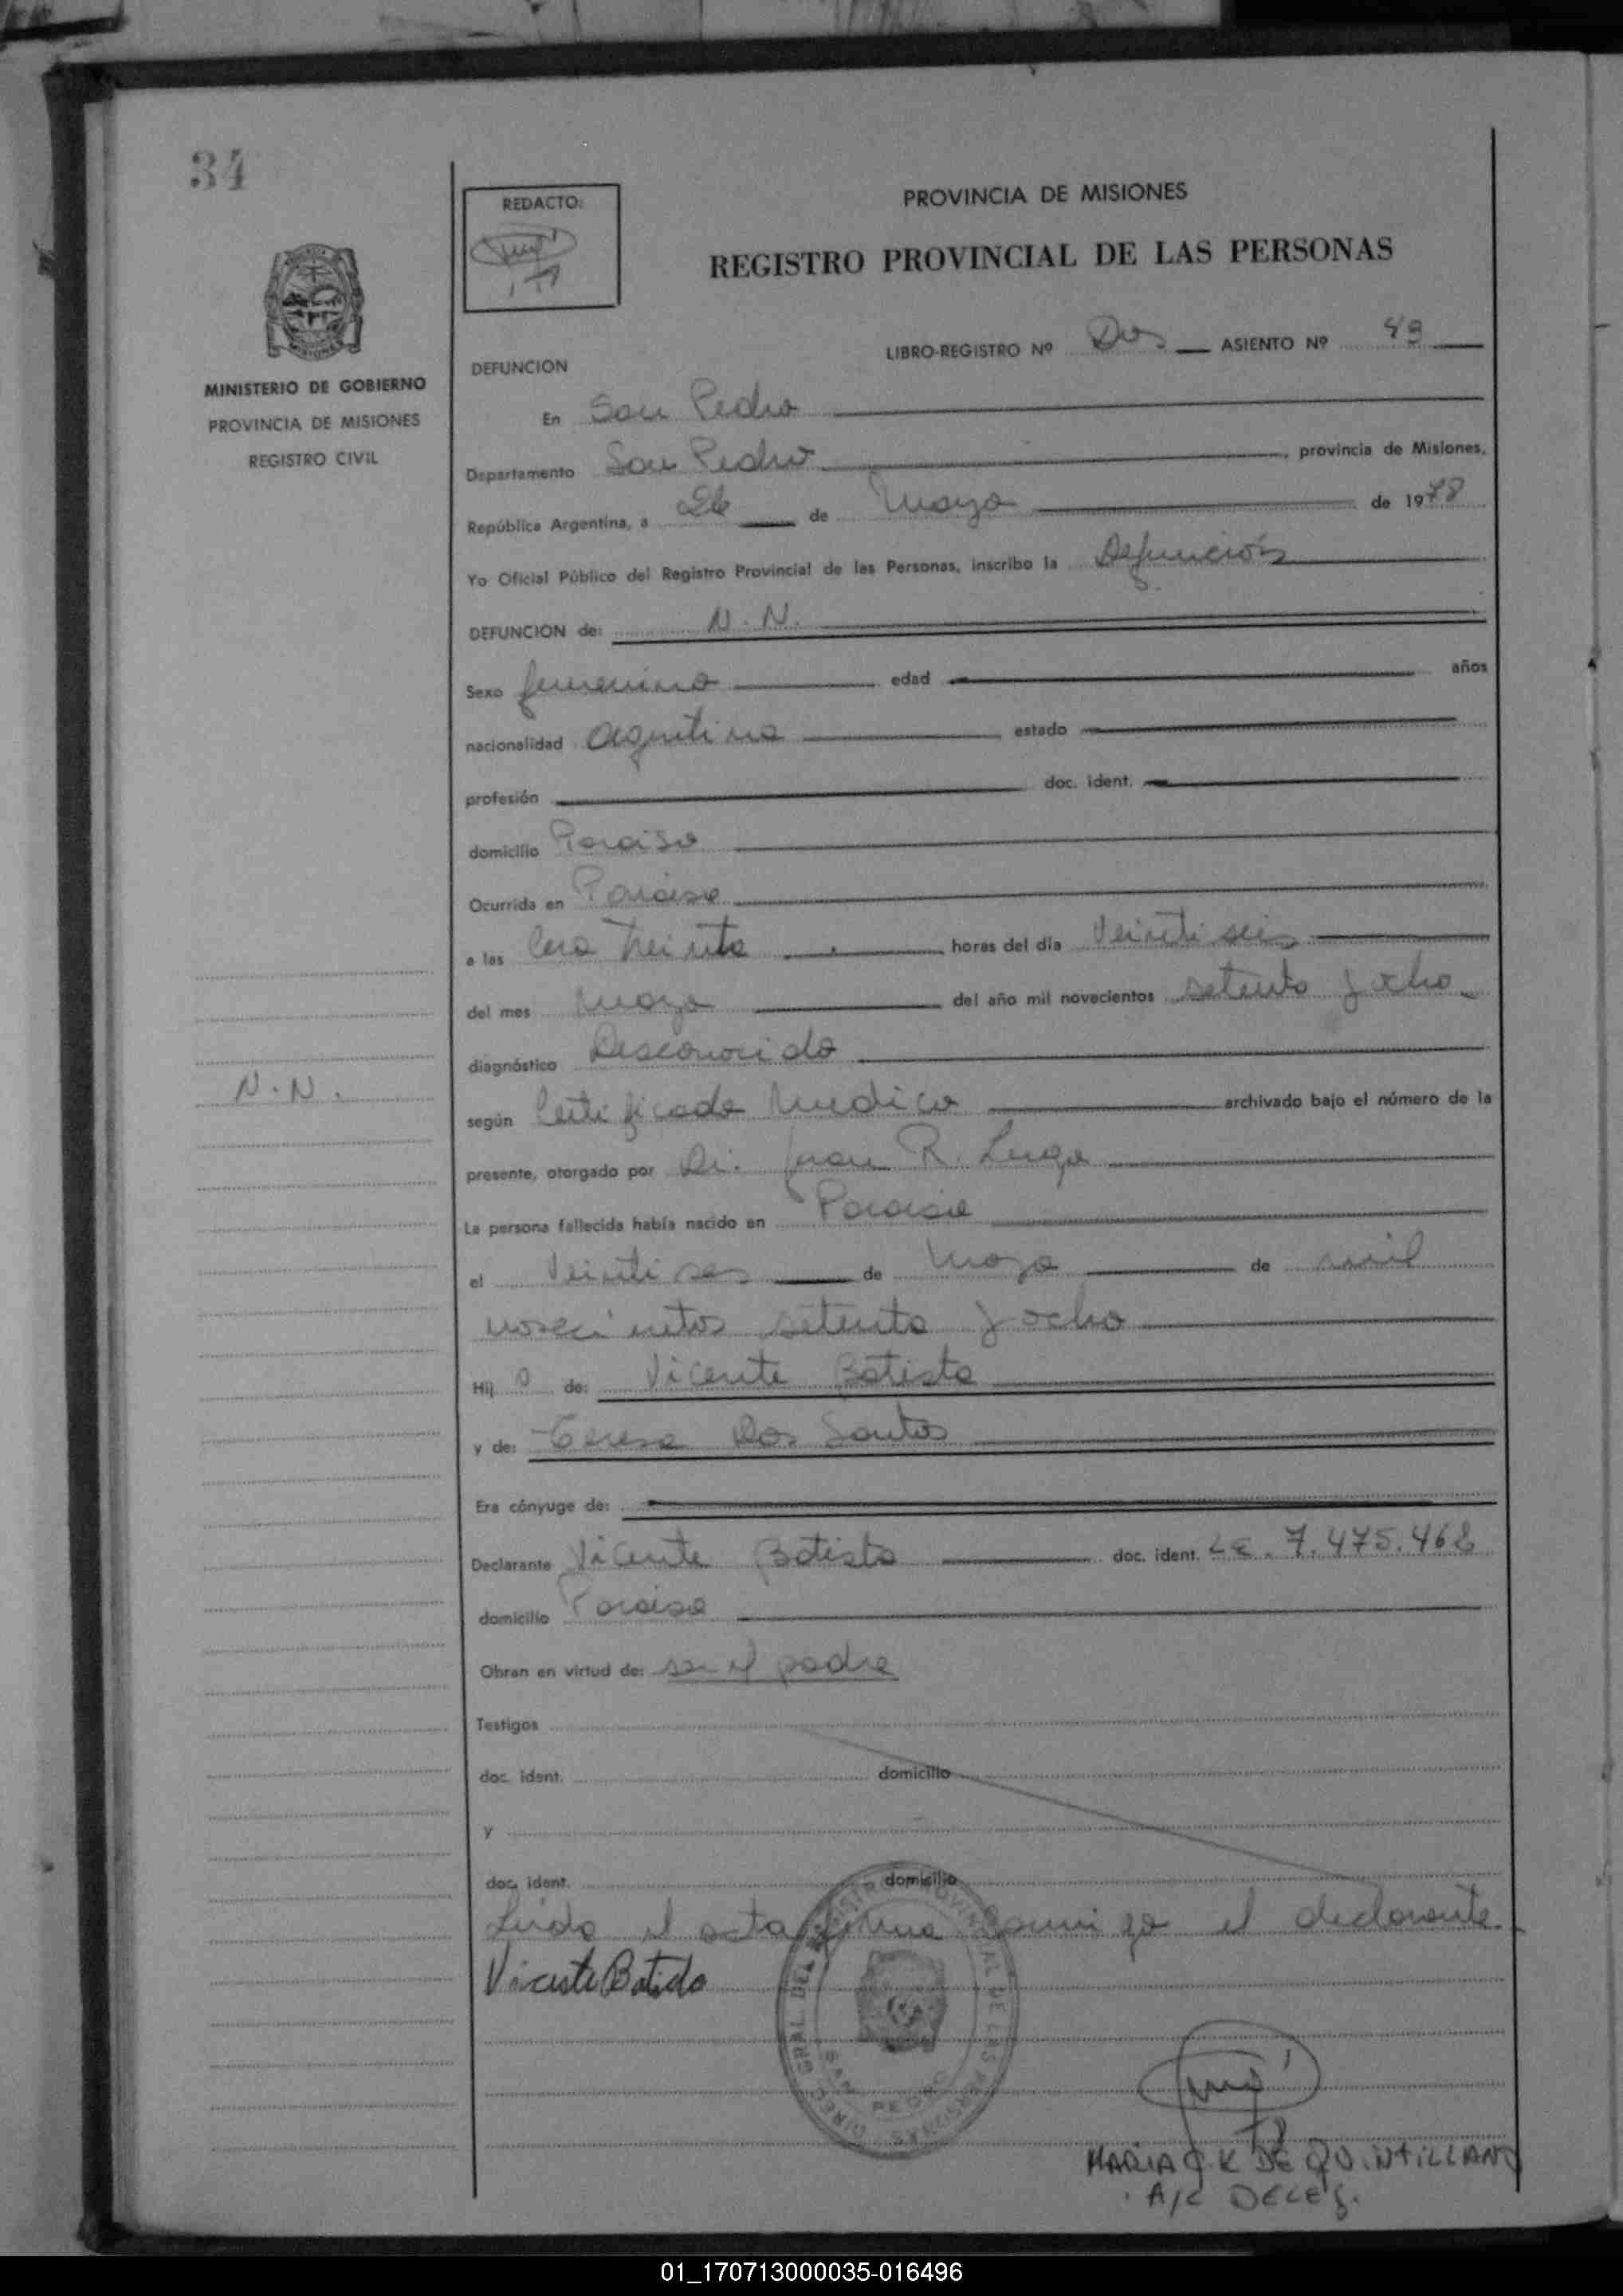 34
REDACTO:
PROVINCIA DE MISIONES
REGISTRO PROVINCIAL DE LAS PERSONAS
MINISTERIO DE GOBIERNO
PROVINCIA DE MISIONES
REGISTRO CIVIL
LIBRO-REGISTRO Nº Dos ASIENTO Nº 43
DEFUNCION
En San Pedro
Departamento San Pedro, provincia de Misiones,
República Argentina, a 26 de Mayo de 1978
Yo Oficial Público del Registro Provincial de las Personas, inscribo la Defunción
DEFUNCION de: N.N.
Sexo femenino edad años
nacionalidad Argentina estado
profesión doc. ident.
domicilio Paraiso
Ocurrida en Paraiso
a las Cero treinta horas del día Veintiseis
del mes Mayo del año mil novecientos setenta y ocho
diagnóstico Desconocido
N.N.
según Certificado Medico archivado bajo el número de la
presente, otorgado por Dr. Juan R. Luga
La persona fallecida había nacido en Paraiso
el Veintiseis de Mayo de mil
novecientos setenta y ocho
Hij o de: Vicente Batista
y de: Teresa Dos Santos
Era cónyuge de:
Declarante Vicente Batista doc. ident. LE. 7.475.468
domicilio Paraiso
Obran en virtud de: ser el padre
Testigos
doc. ident. domicilio
y
doc. ident. domicilio
Leida el acta firma conmigo el declarante.
Vicente Batista
DIREC. GRAL. DEL REGISTRO PROVINCIAL DE LAS PERSONAS
SAN PEDRO
MARIA C. K DE QUINTILLAN
A/C DELEG.
01_170713000035-016496